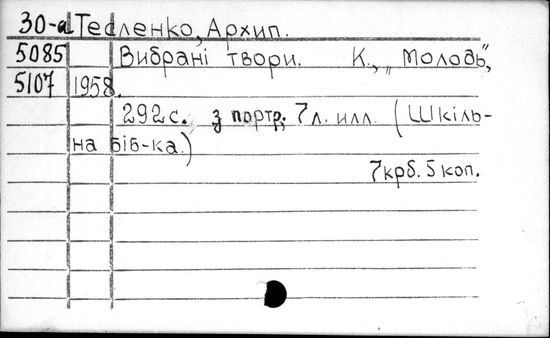 30-а Тесленко, Архип.
5085 Вибрані твори. К., „Молодь",
5107 1958.
292с. з портр. 7л. илл. (Шкіль-
на біб-ка.)
7крб. 5 коп.